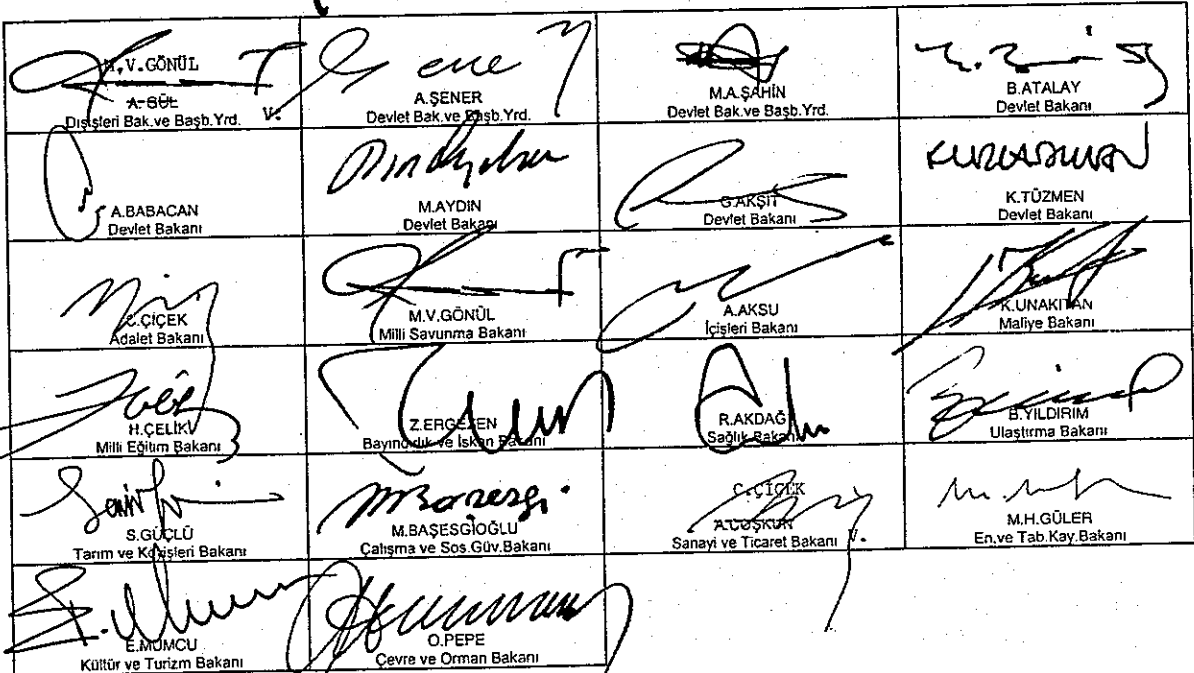 M.V.GÖNÜL
A.GÜL
Dışişleri Bak.ve Başb.Yrd. V.
A.ŞENER
Devlet Bak.ve Başb.Yrd.
M.A.ŞAHİN
Devlet Bak.ve Başb.Yrd.
B.ATALAY
Devlet Bakanı
A.BABACAN
Devlet Bakanı
M.AYDIN
Devlet Bakanı
G.AKŞİT
Devlet Bakanı
K.TÜZMEN
Devlet Bakanı
C.ÇİÇEK
Adalet Bakanı
M.V.GÖNÜL
Milli Savunma Bakanı
A.AKSU
İçişleri Bakanı
K.UNAKITAN
Maliye Bakanı
H.ÇELİK
Milli Eğitim Bakanı
Z.ERGEZEN
Bayındırlık ve İskan Bakanı
R.AKDAĞ
Sağlık Bakanı
B.YILDIRIM
Ulaştırma Bakanı
S.GÜÇLÜ
Tarım ve Köyişleri Bakanı
M.BAŞESGİOĞLU
Çalışma ve Sos.Güv.Bakanı
C.ÇİÇEK
A.COŞKUN
Sanayi ve Ticaret Bakanı V.
M.H.GÜLER
En.ve Tab.Kay.Bakanı
E.MUMCU
Kültür ve Turizm Bakanı
O.PEPE
Çevre ve Orman Bakanı